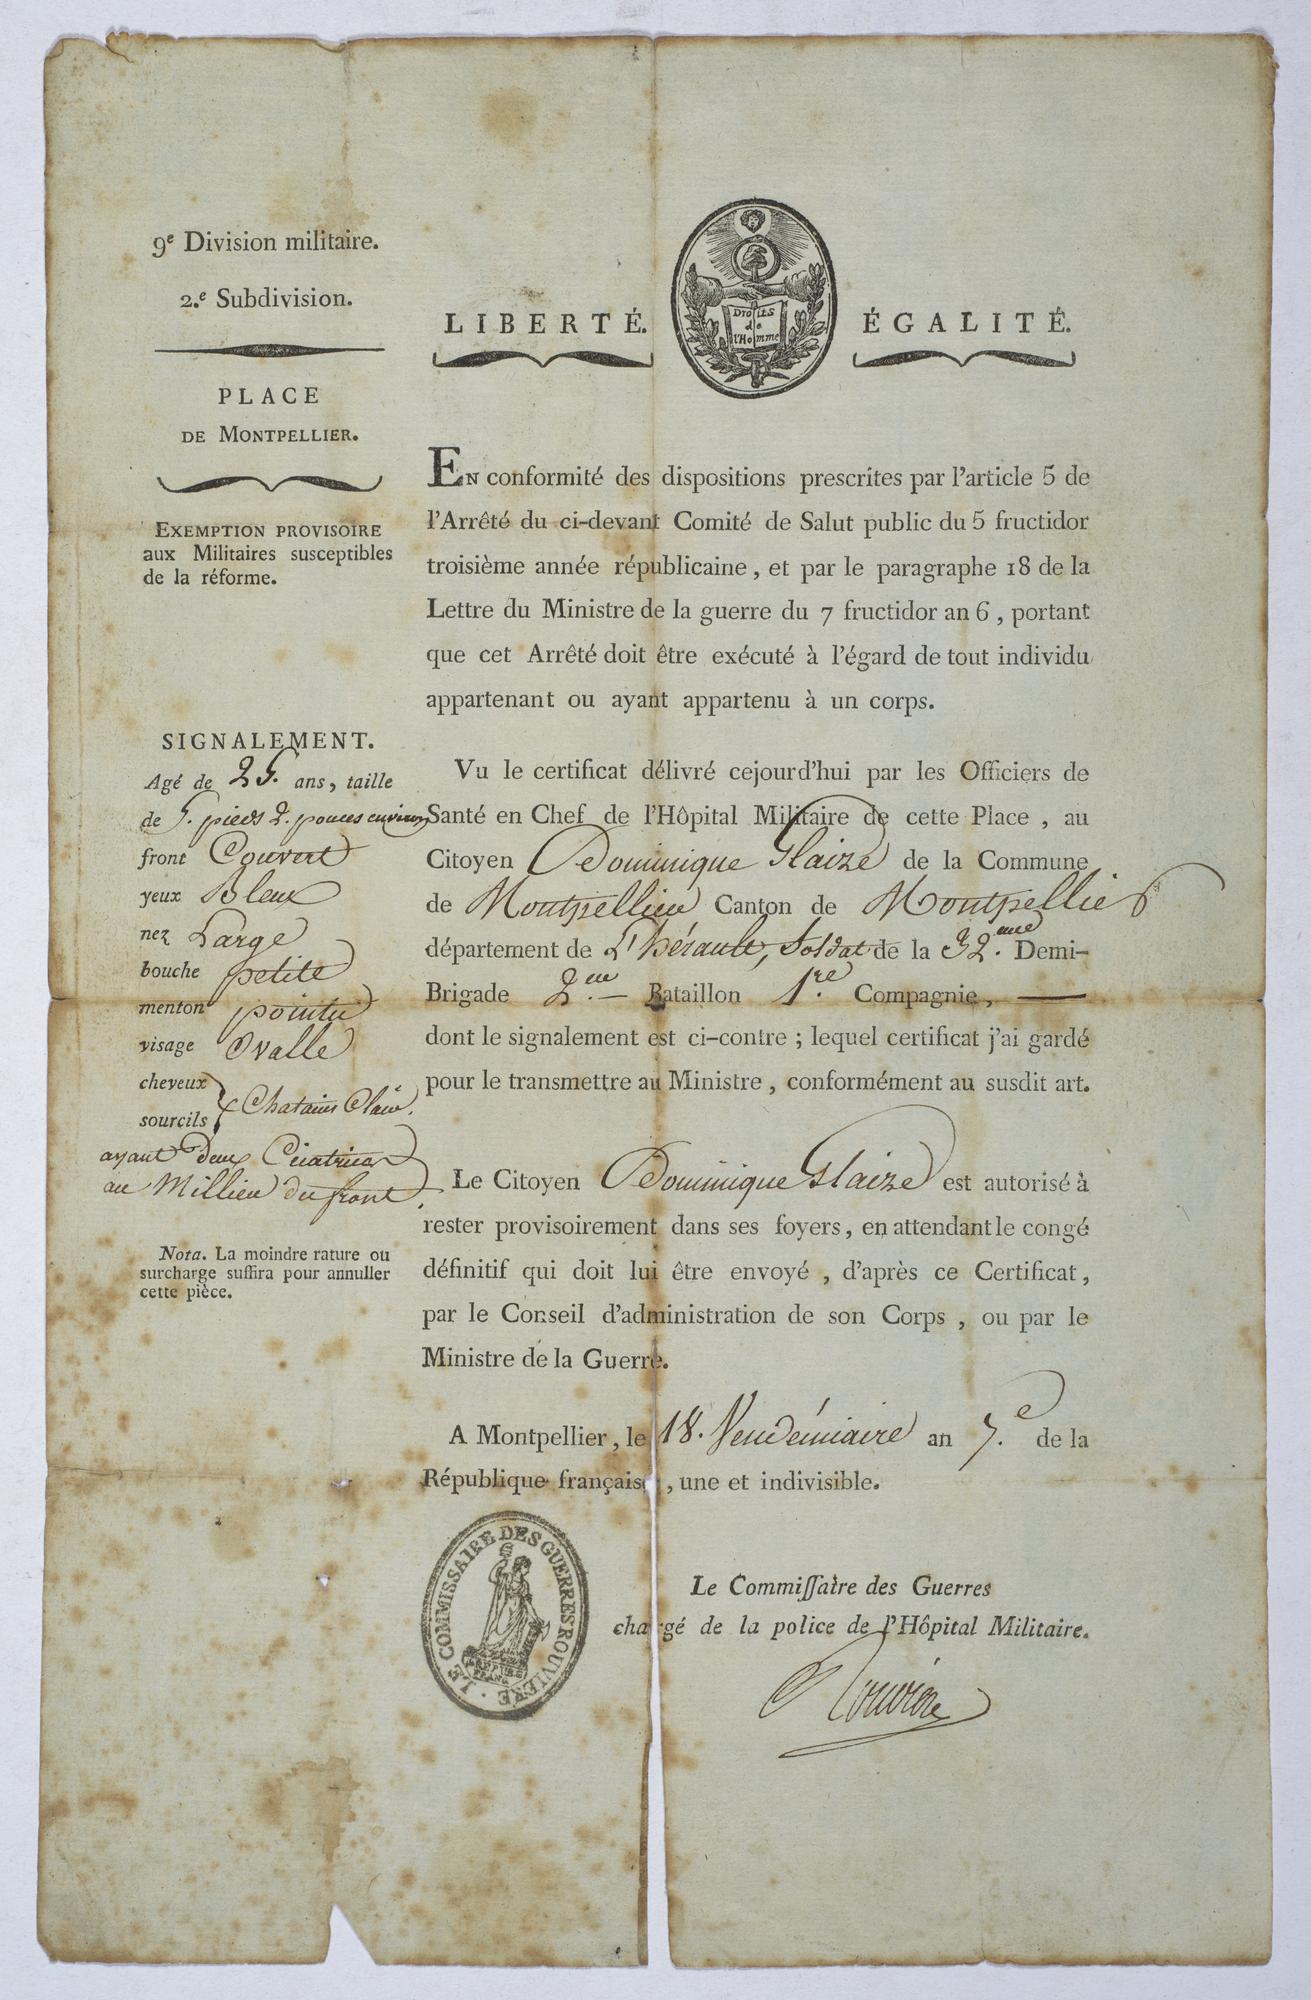 9e Division militaire.
2.e Subdivision.
PLACE
DE MONTPELLIER.
EXEMPTION PROVISOIRE
aux Militaires susceptibles
de la réforme.
SIGNALEMENT.
Agé de 25. ans, taille
de 5. pieds 2. pouces environ
front Couvert
yeux bleux
nez Large
bouche petite
menton pointu
visage Ovalle
cheveux
sourcils } Chatains Clair.
ayant Deux Cicatrices
au Millieu du front.
Nota. La moindre rature ou
surcharge suffira pour annuller
cette pièce.
LIBERTÉ. ÉGALITÉ.
Droits
de
l'Homme
EN conformité des dispositions prescrites par l'article 5 de
l'Arrêté du ci-devant Comité de Salut public du 5 fructidor
troisième année républicaine, et par le paragraphe 18 de la
Lettre du Ministre de la guerre du 7 fructidor an 6, portant
que cet Arrêté doit être exécuté à l'égard de tout individu
appartenant ou ayant appartenu à un corps.
Vu le certificat délivré cejourd'hui par les Officiers de
Santé en Chef de l'Hôpital Militaire de cette Place, au
Citoyen Dominique Glaize de la Commune
de Montpellier Canton de Montpellier
département de L'hérault, Soldat de la 32.me Demi-
Brigade 2.me — Bataillon 1.re Compagnie, —
dont le signalement est ci-contre; lequel certificat j'ai gardé
pour le transmettre au Ministre, conformément au susdit art.
Le Citoyen Dominique Glaize est autorisé à
rester provisoirement dans ses foyers, en attendant le congé
définitif qui doit lui être envoyé, d'après ce Certificat,
par le Conseil d'administration de son Corps, ou par le
Ministre de la Guerre.
A Montpellier, le 18. Vendémiaire an 7.e de la
République française, une et indivisible.
LE COMMISSAIRE DES GUERRES ROUVIERE
Le Commissaire des Guerres
chargé de la police de l'Hôpital Militaire.
Rouvière